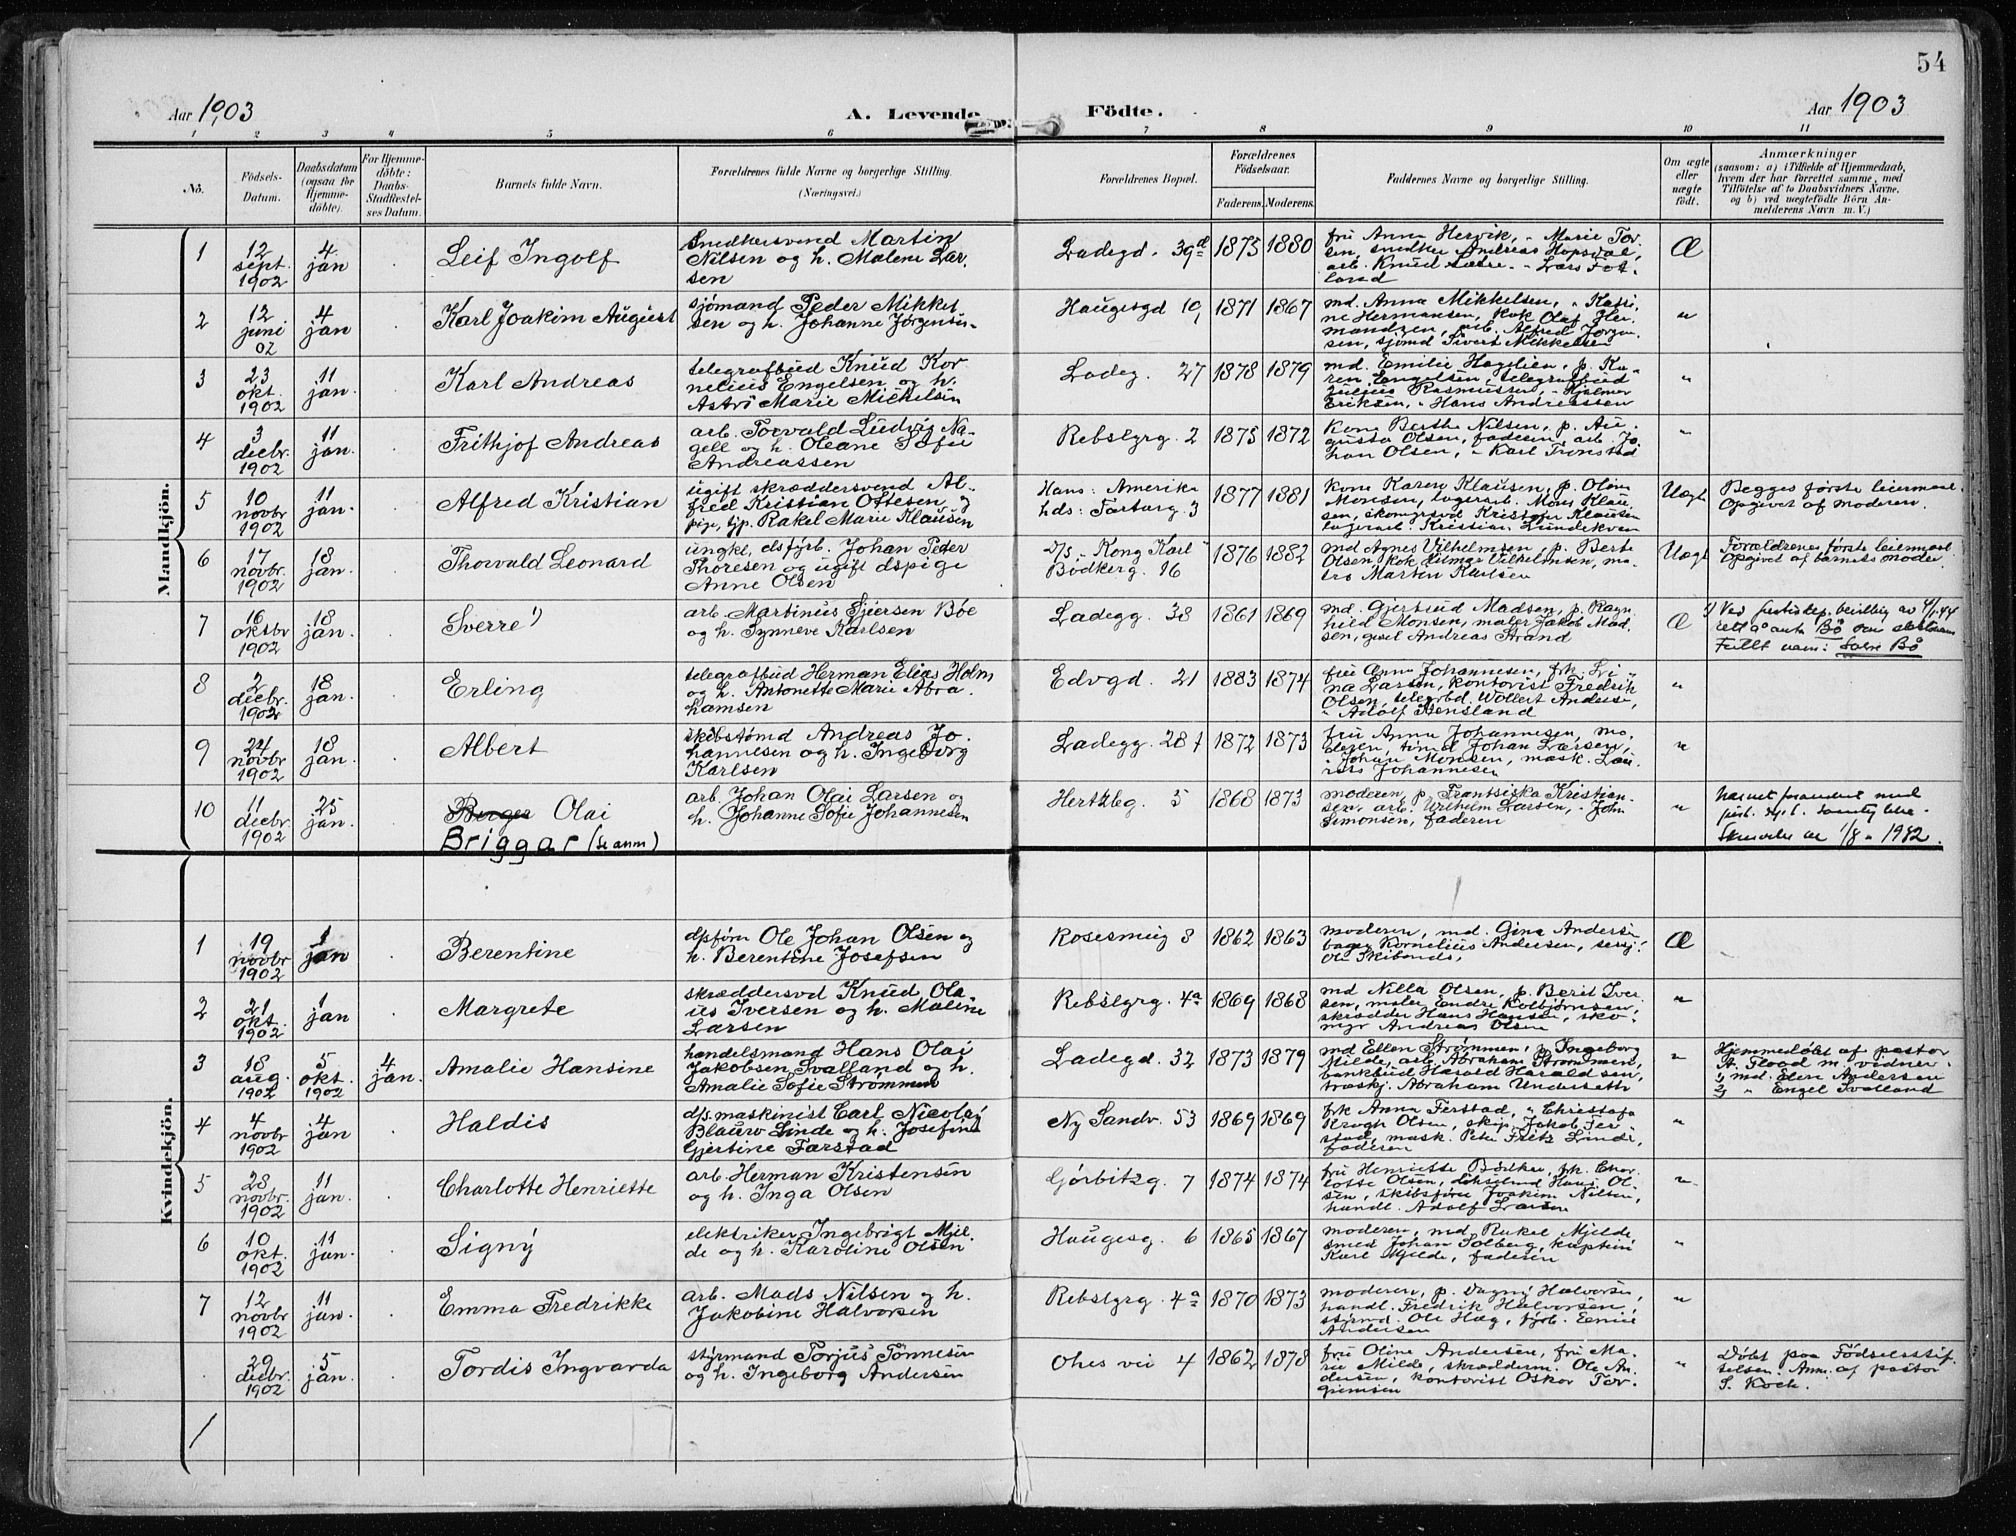 54
Aar 1903
A. Levende
Födte.
Aar 1903
1 2 3 4 5 6 7 8 9 10 11
No.
Födsels-
Datum.
Daabsdatum
(ogsaa for
Hjemme-
döbte).
For Hjemme-
döbte:
Daabs-
Stadfæstel-
ses Datum.
Barnets fulde Navn.
Forældrenes fulde Navne og borgerlige Stilling.
(Næringsvei.)
Forældrenes Bopæl.
Forældrenes
Födselsaar.
Faderens. Moderens.
Faddernes Navne og borgerlige Stilling.
Om ægte
eller
uægte
födt.
Anmærkninger
(saasom: a) i Tilfælde af Hjemmedaab,
hvem der har forrettet samme, med
Tilföielse af to Daabsvidners Navne,
og b) ved uægtefödte Börn An-
melderens Navn m. V.)
Mandkjön.
1
12
sept.
1902
4
jan
Leif Ingolf
Snedkersvend Martin
Nilsen og h. Malene Lar-
sen
Ladegd. 39d
1875 1880
fru Anna Hervik, " Marie Tor-
sen, snedker Andreas Hopsdal,
arb. Knud Sætre. " Lars Fot-
land
Æ
2
12
juni
02
4
jan
Karl Joakim August
sjømand Peder Mikkel
sen og h. Johanne Jørgensen
Haugesgd 10,
1871 1867
md. Anna Mikkelsen, " Kathi-
ne Hermansen, kok Olaf Her-
mandsen, arb. Alfred Jørgen-
sen, sjømd Sivert Mikkelsen
"
3
23
okt.
1902
11
jan.
Karl Andreas
telegrafbud Knud Kor
nelius Engelsen og h.
Astri Marie Michelsen
Ladeg. 27
1878 1879
md. Emilie Hagelien, p. Ka-
ren Engelsen, telegrafbud
Julius Rasmussen, " Hjalmer
Eriksen, " Hans Andreassen
"
4
3
decbr.
1902
11
jan.
Frithjof Andreas
arb. Torvald Ludvig Na-
gell og h. Oleane Sofie
Andreassen
Rebslgrg. 2
1875 1872
kone Berthe Nilsen, p. Au-
gusta Olsen, faderen, arb. Jo-
han Olsen, " Karl Tronstad
"
5
10
novbr
1902
11
jan.
Alfred Kristian
ugift skræddersvend Al-
fred Kristian Ottesen og
pige, tjp. Rakel Marie Klausen
Hans: Amerika
hds: Torborg. 3
1877 1881
kone Karen Klausen, p. Oline
Monsen, lagerarb. Mons Klau-
sen, skomgrsvd Kristoffer Klausen
lagerarb. Kristian Lundekvam
Uægt
Begges første leiermaal.
Opgivet af moderen.
6
17
novbr.
1902
18
jan.
Thorvald Leonard
ungk. dsfyrb. Johan Peder
Thoresen og ugift dspige
Anne Olsen
D/s "Kong Karl"
Bødkerg. 16
1876 1882
md Agnes Vilhelmsen, p. Berte
Olsen, kok Hilmar Vilhelmsen, ma-
tros Martin Karlsen
Uægt
Forældrenes første leiermaal
Opgivet af barnets moder.
7
16
oktbr
1902
18
jan.
Sverre 1)
arb. Martinus Sjursen Bøe
og h. Synneve Karlsen
Ladegg. 38
1861 1869
md. Gjertrud Madsen, p. Ragn-
hild Monsen, maler Jakob Mad-
sen, gesel Andreas Strand
Æ
1) Ved justisdep. bevilling av 4/1.44
rett å anta Bö som slektsnavn
Fullt navn: Sverre Bö
8
2
decbr.
1902
18
jan.
Erling
telegrafbud Herman Elias Holm
og h. Antonette Marie Abra-
hamsen
Edvgd. 21
1883 1874
fru Anna Johannesen, frk. Li-
na Larsen, kontorist Fredrik
Olsen, telegrbd. Wollert Anders-,
" Adolf Stensland
"
9
24
novbr
1902
18
jan.
Albert
skibstømd Andreas Jo-
hannesen og h. Ingeborg
Karlsen
Ladegg. 28
1872 1873
fru Anna Johannesen, mo-
deren, tømd Johan Larsen,
" Johan Monsen, mask. Lau-
rits Johannesen
"
10
11
decbr.
1902
25
jan.
Berger Olai
Briggar (se anm)
arb. Johan Olai Larsen og
h. Johanne Sofie Johannesen
Hertzbg. 5
1868 1873
moderen, p. Frantsiska Kristian-
sen, arb. Wilhelm Larsen, " John
Simonsen, faderen
"
Navnet forandret med
just. dept. samtykke.
Skrivelse av 1/8 - 1942.
Kvindekjön.
1
19
novbr
1902
1
jan
Berentine
dpfører Ole Johan Olsen og
h. Berentine Josefsen
Rosesmug 8
1862 1863
moderen, md. Gina Andersen
bager Kornelius Andersen,
Ole Skibenes,
Æ
2
21
okt.
1902
1
jan
Margrete
skræddersvd Knud Ola
us Iversen og h. Maline
Larsen
Rebslgrg. 4a
1869 1868
md Nilla Olsen, p. Berit Iver-
sen, maler Endre Kolbjørnsen,
skrædder Hans Hansen, sko-
mgr Andreas Olsen
"
3
18
aug.
1902
5
okt.
1902
4
jan.
Amalie Hansine
handelsmand Hans Olai
Jakobsen Svalland og h.
Amalie Sofie Strømmen
Ladegd. 32
1873 1879
md Ellen Strømmen, p. Ingeborg
Milde, arb. Abraham Strømmen,
bankbud Harald Haraldsen,
træskj. Abraham Underseth
"
Hjemmedøbt af pastor
A. Flood m. vidner
1) md. Elen Andersen
2) " Engel Svalland
4
4
novbr
1902
4
jan
Haldis
d/s. maskinist Carl Nicolay
Blauw Linde og h. Josefine
Gjertine Farstad
Ny Sandv. 53
1869 1869
frk Anna Ferstad, " Christofa
Krogh Olsen, skip. Jakob Fer-
stad, mask. Peter Fritz Linde,
faderen
"
5
28
novbr.
1902
11
jan.
Charlotte Henriette
arb. Herman Kristensen
og h. Inga Olsen
Görbitzg. 7
1874 1874
fru Henriette Bödker, frk. Char-
lotte Olsen, Hans Ol-
sen, skibsfører Joakim Nilsen,
handl. Adolf Larsen
"
6
10
okt.
1902
11
jan.
Signy
elektriker Ingebrigt Mjel-
de og h. Karoline Olsen
Haugesg. 6
1865 1867
moderen, md. Rakel Mjelde
smed Johan Solberg, kaptein
Karl Mjelde, faderen
"
7
12
novbr
1902
11
jan.
Emma Fredrikke
arb. Mads Nilsen og h.
Jakobine Halvorsen
Rebslgrg. 4a
1870 1873
moderen, p. Dagny Halvorsen,
handl. Fredrik Halvorsen,
styrmd. Ole Hæg, fyrb. Emil
Andersen
"
29
decbr.
1902
5
jan.
Tordis Ingvarda
styrmand Torjus Tönnesen
og h. Ingeborg Andersen
Ohes vei 4
1862 1878
fru Oline Andersen, fru Ma-
rie Milde, skrædderm. Ole An-
dersen, kontorist Oskar Tor-
gersen
"
Døbt paa Födselsstif-
telsen. Anm. af pastor
S. Koch.